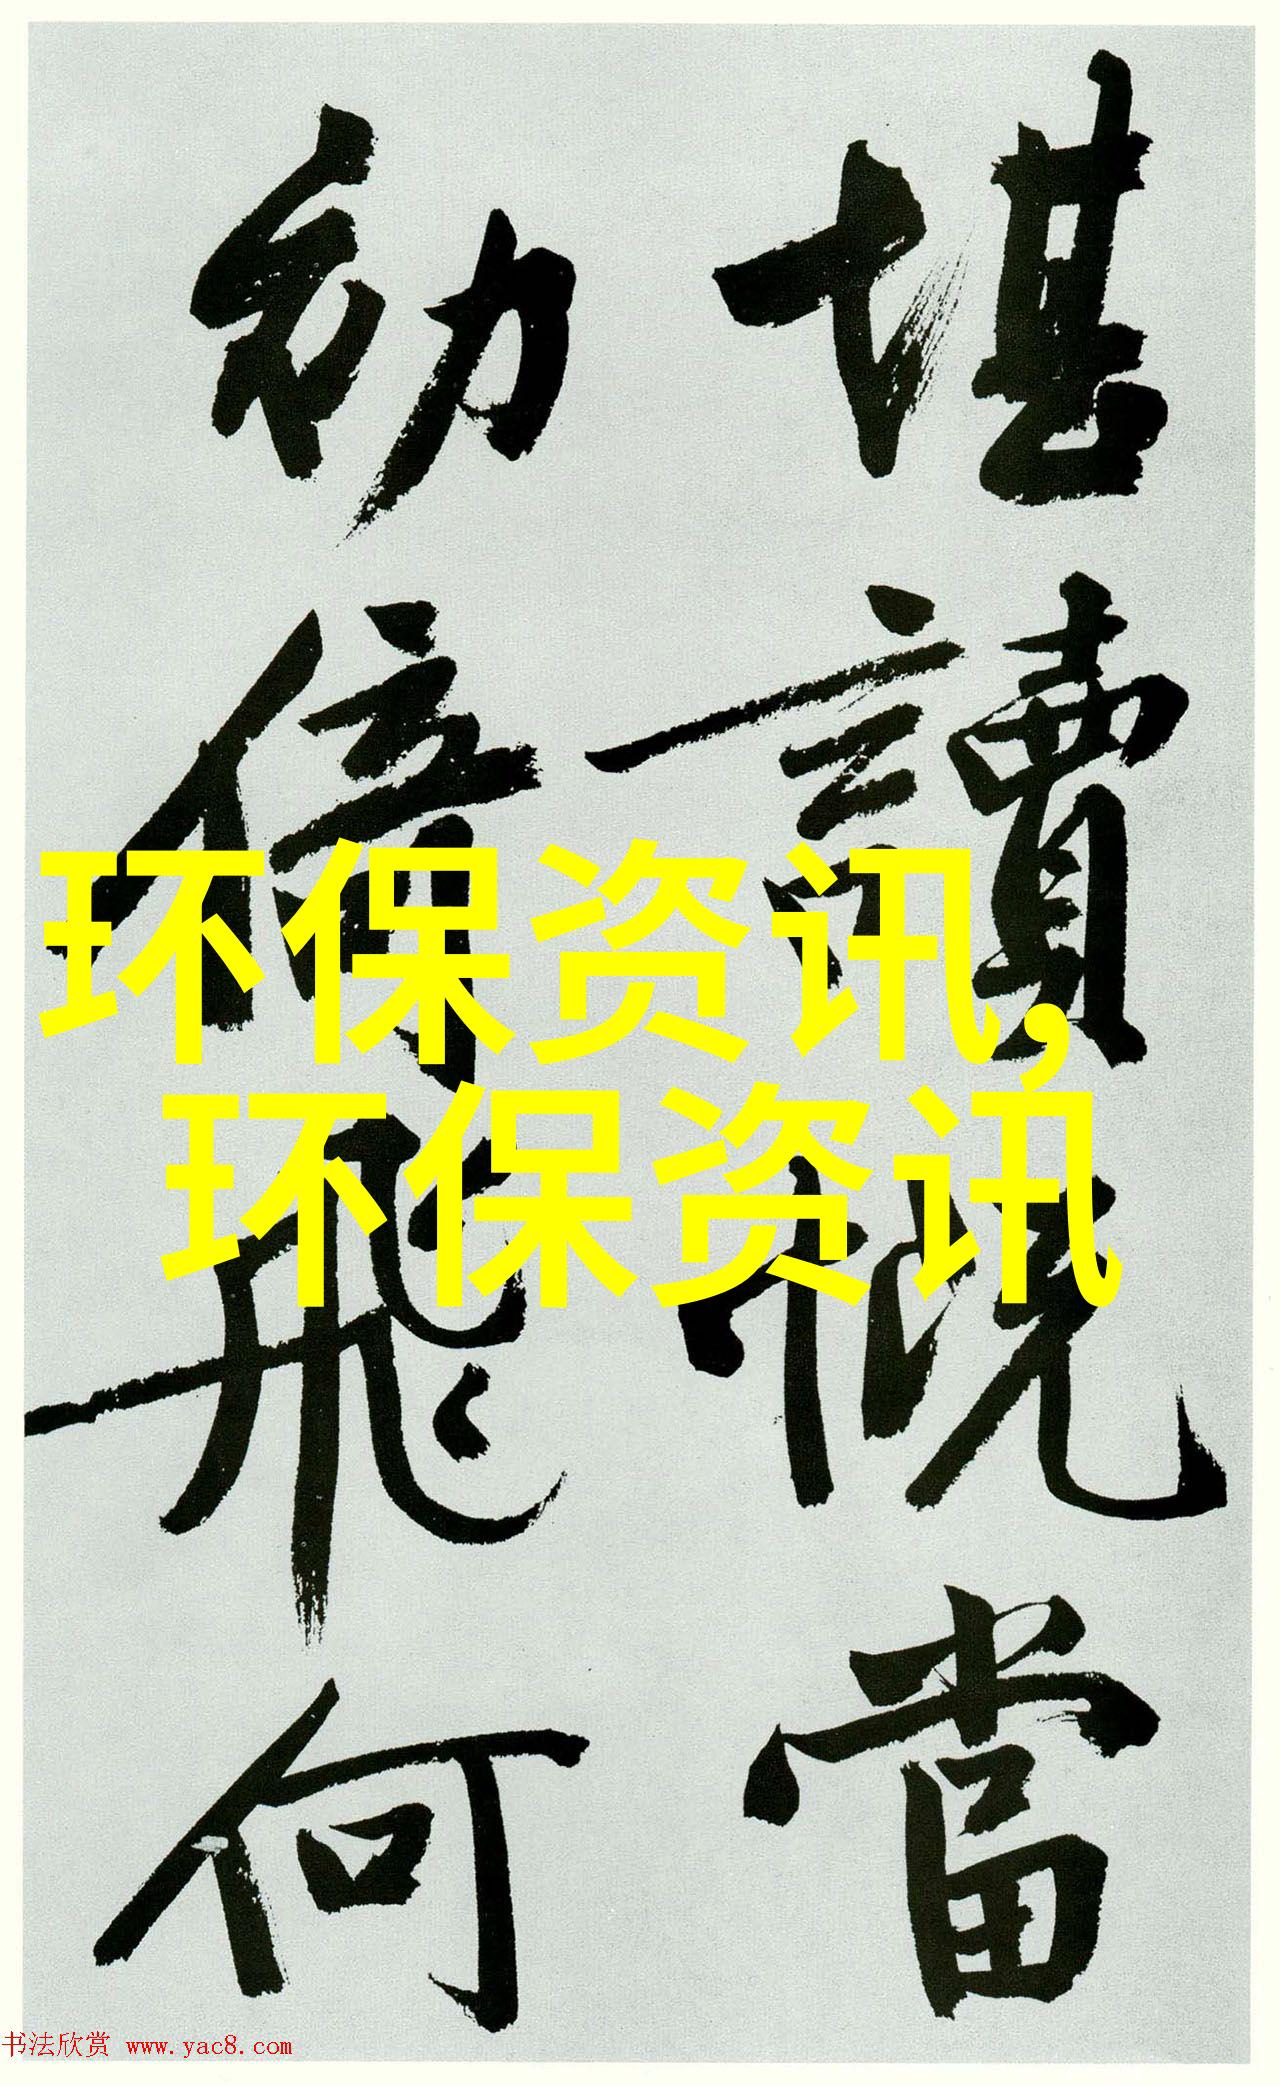 堪讀慨當
幼倍飛何
环保资讯,
环保资讯
书法欣赏 www.yac8.com